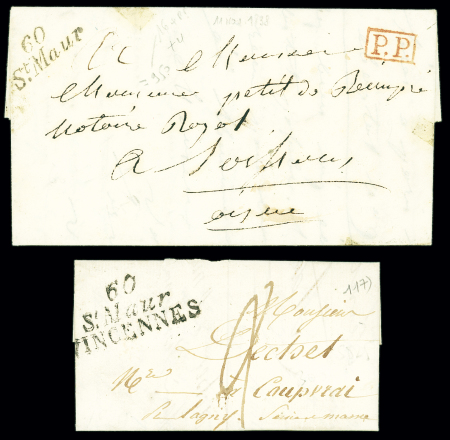 60
St Maur
P.P.
à Monsieur
Monsieur petit de
Notaire Royal
A Soissons
aisne
60
St Maur
VINCENNES
117)
Monsieur
à Coupvrai
Lagny Seine et marne